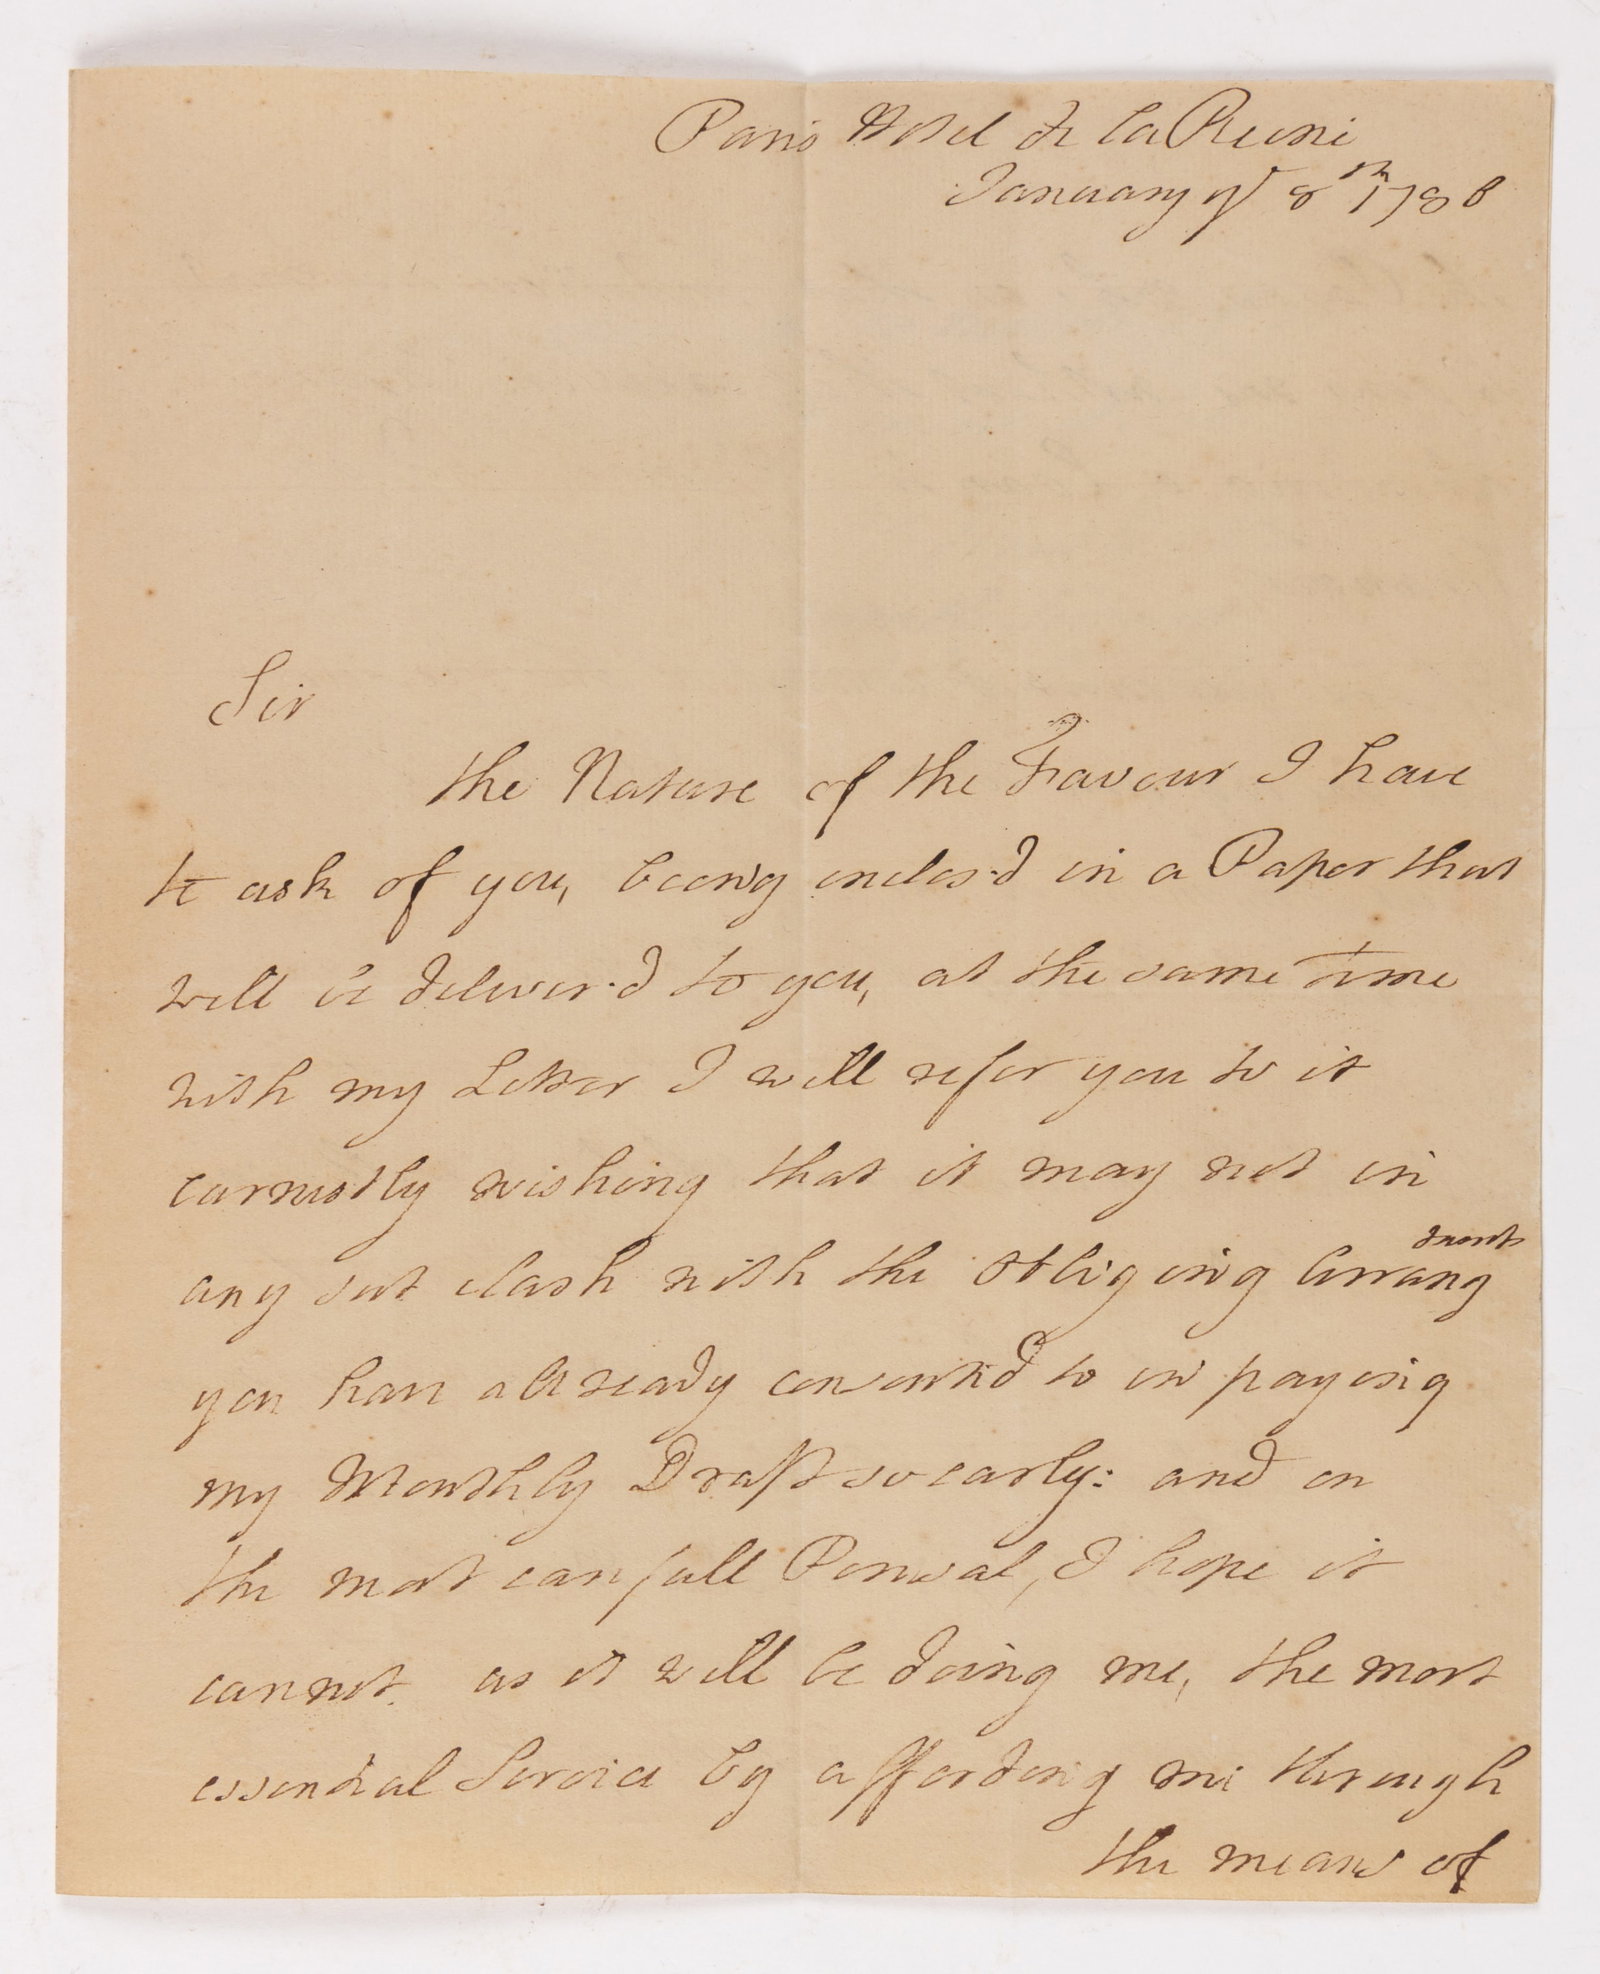 Paris Hotel de la Reine
January ye 8th 1788
Sir
the Nature of the Favour I have
to ask of you, being enclos'd in a Paper that
will be deliver'd to you, at the same Time
with my Letter I will refer you to it
earnestly wishing that it may not in
any sort clash with the Obliging Arrangements
you have allready consented to in paying
my Monthly Draft so early: and on
the most carefull Perusal, I hope it
cannot. as it will be doing me, the most
essential Service by affording me through
the means of